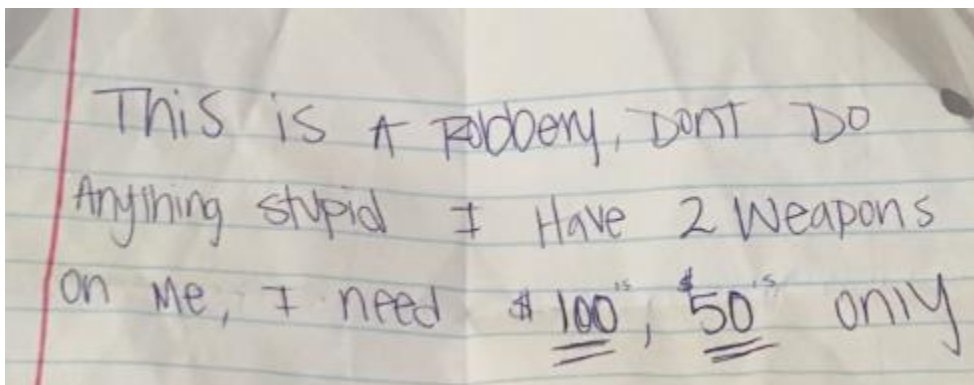 This is A Robbery, Dont Do
Anything stupid I Have 2 Weapons
on Me, I need $100's, $50's only